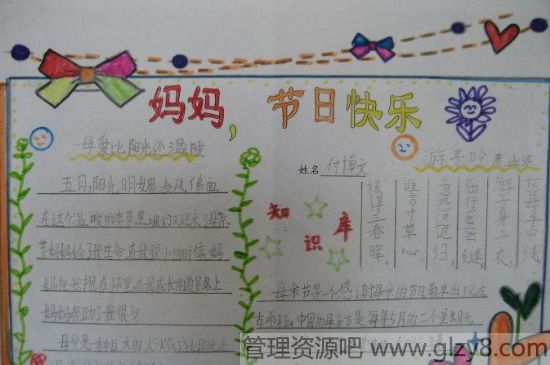 妈妈，节日快乐
母爱比阳光还温暖
五月，阳光明媚，春风佛面，
在这个温暖的季节里，我们
妈妈给了我生命，在我很小的时候，妈
妈把我抱在怀里，在我成长的道路上
妈妈帮助了我很多
母爱是一种巨大的火焰
姓名 付博文
游子吟 唐 孟郊
慈母手中线，
游子身上衣，
临行密密缝，
意恐迟迟归，
谁言寸草心，
报得三春晖。
知识库
母亲节是一个感谢母亲的节日，最早出现在
古希腊，中国的母亲节是每年5月的二个星期天
管理资源吧 www.glzy8.com